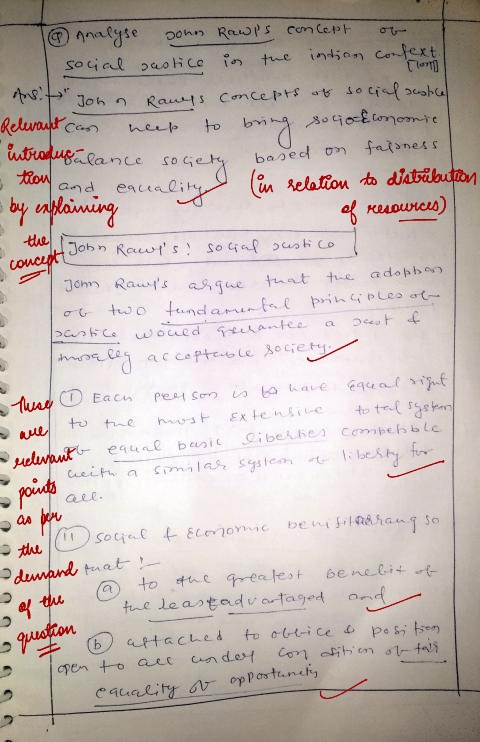 Q Analyse John Rawl's concept of
social Justice in the indian context.
[10M]
Ans:→ "John Rawls concepts of social Justice
can help to bring socio-Economic
balance society based on fairness
and equality.
(in relation to distribution
of resources)
Relevant
introduc-
tion
by explaining
the
concept
John Rawl's: social Justice
John Rawl's argue that the adoption
of two fundamental principles of
Justice would guarantee a Just &
morally acceptable society.
(I) Each person is to have equal right
to the most extensive total system
of equal basic liberties compatible
with a similar system of liberty for
all.
These
are
relevant
points
as per
the
demand
of the
question
(II) social & Economic benifit arrang so
that :-
(a) to the greatest benefit of
the least advantaged and
(b) attached to office & position
open to all under condition of fair
equality of opportunity